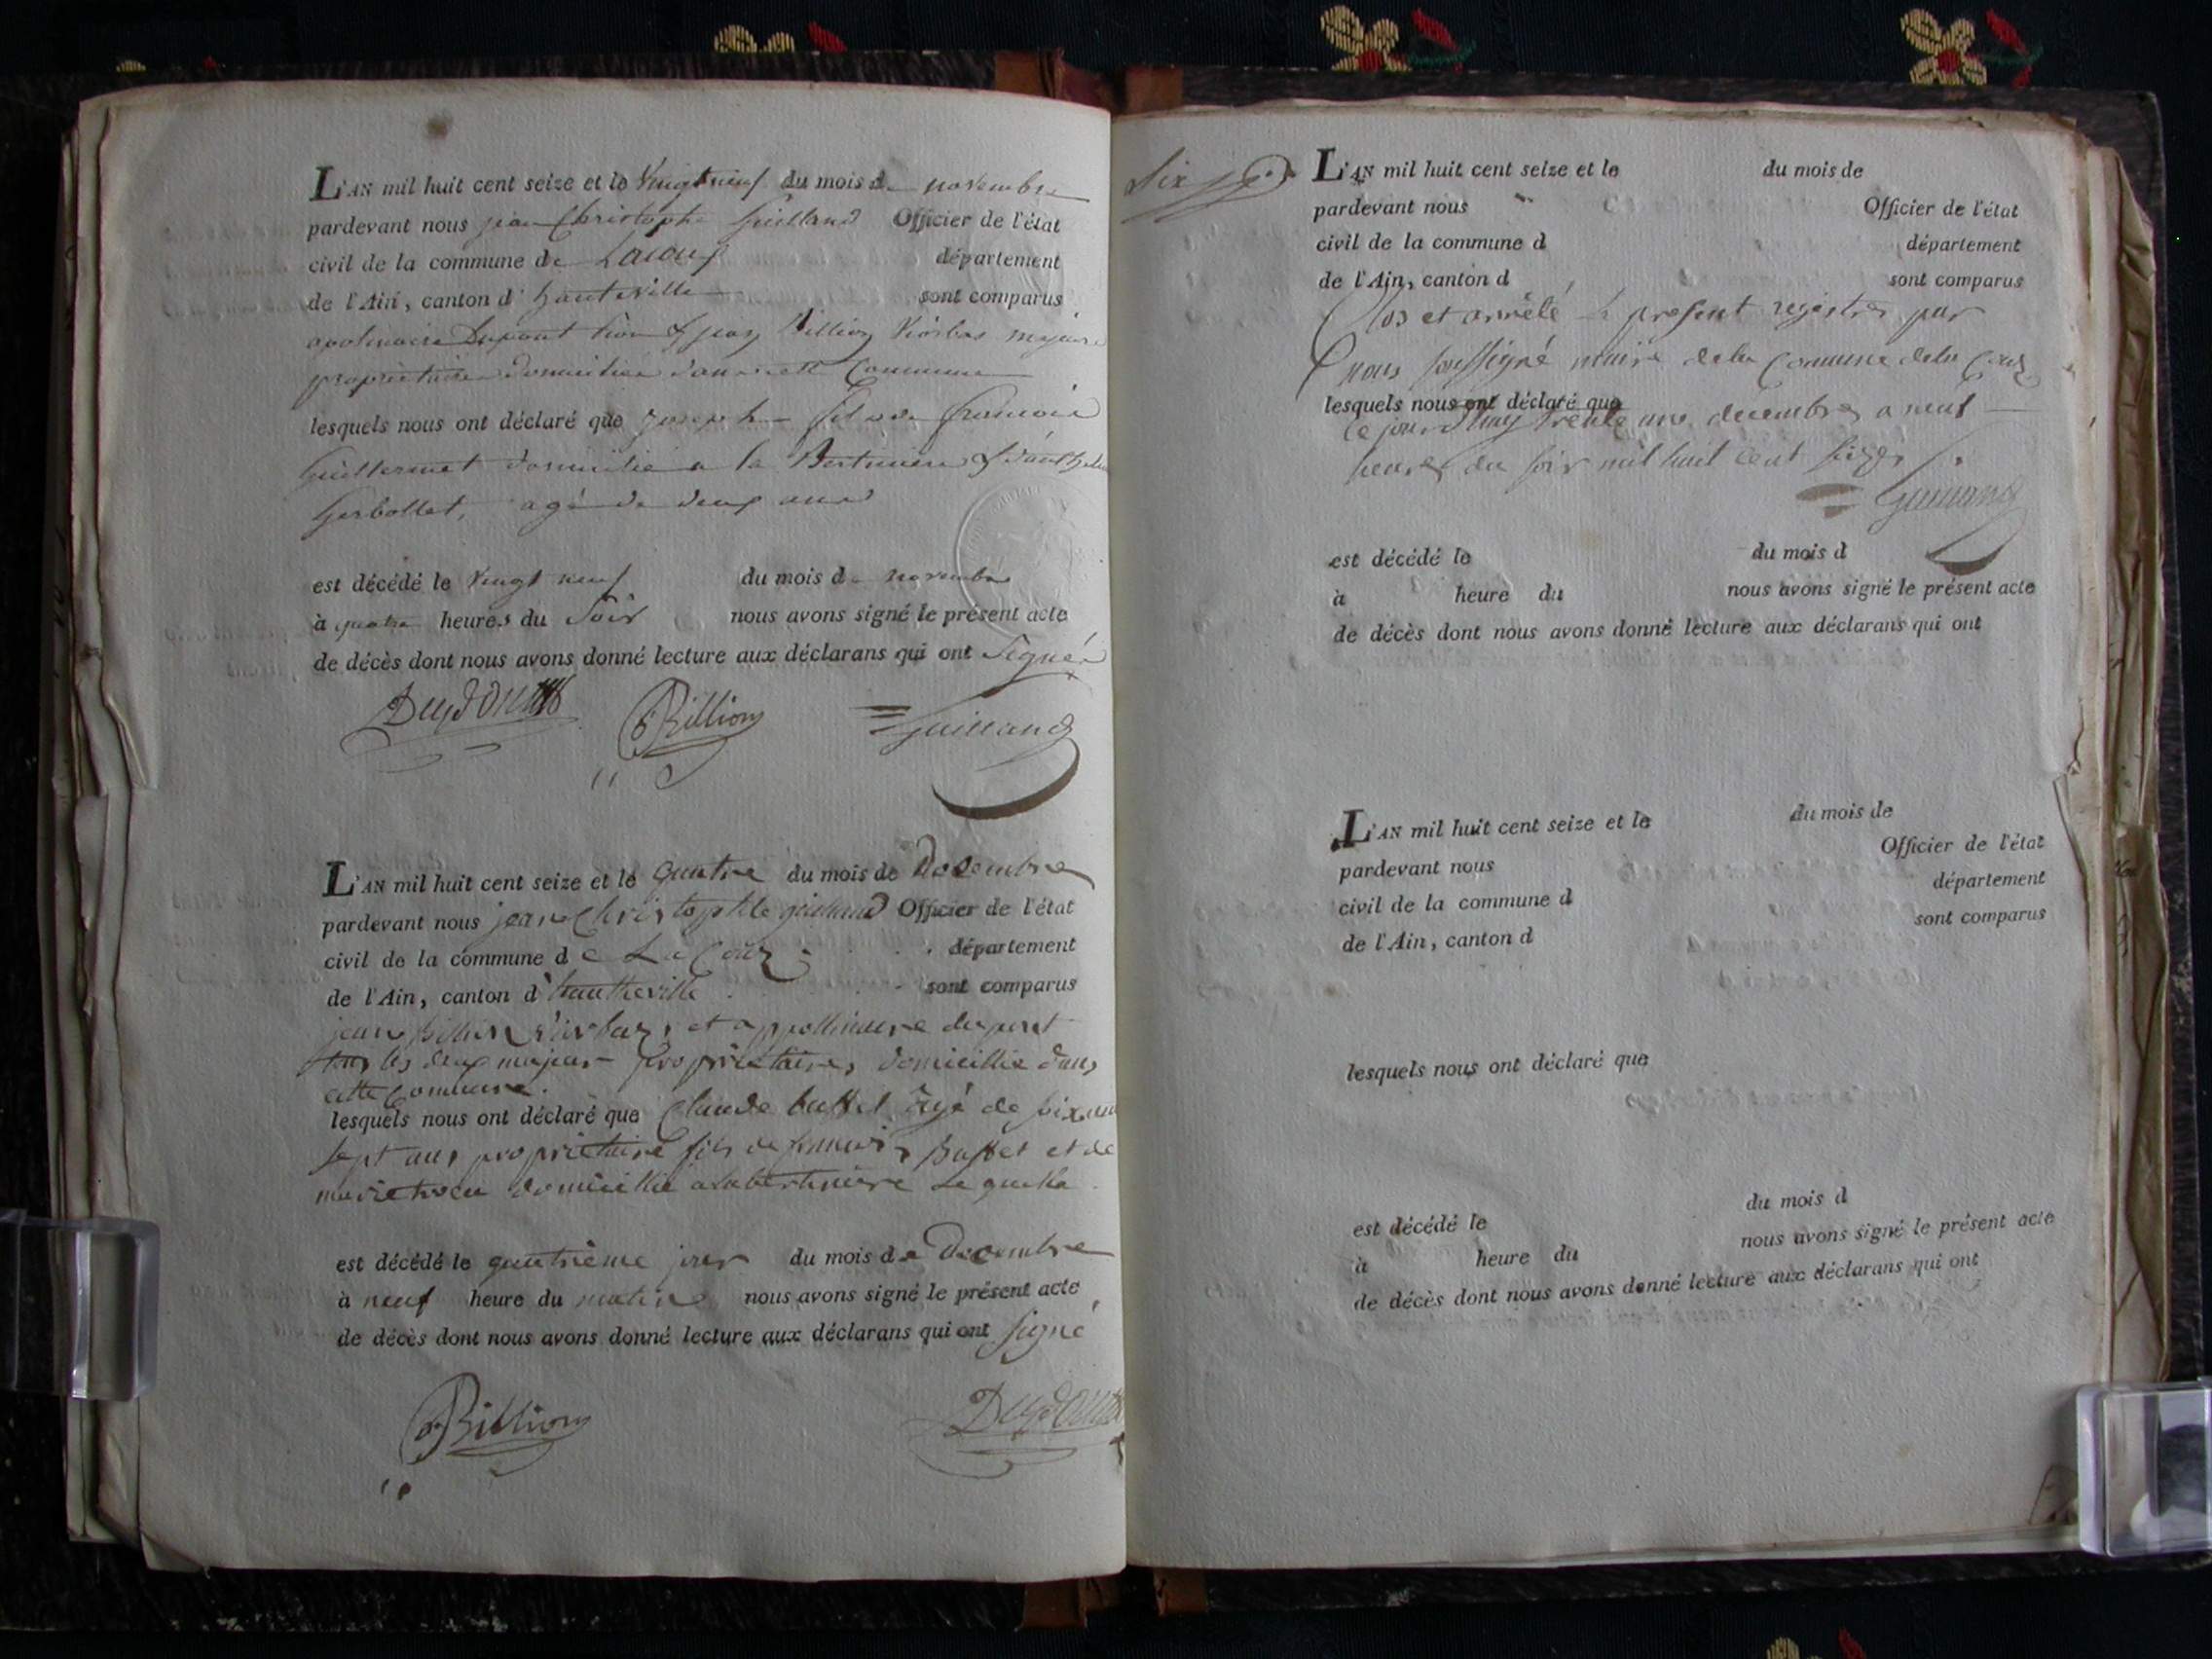 L'AN mil huit cent seize et le Vingt neuf du mois de novembre
pardevant nous jean Christophe Guilland Officier de l'état
civil de la commune de Lacoux département
de l'Ain, canton d' hauteville sont comparus
Dupont Billion majeurs
propriétaires domiciliés dans cette Commune
lesquels nous ont déclaré que joseph fils de François
Guillermet domicilié a la Bertiniere &
Gerbollet, agé de deux ans
est décédé le Vingt neuf du mois de novembre
à quatre heures du Soir nous avons signé le présent acte
de décès dont nous avons donné lecture aux déclarans qui ont Signé
Billion Guilland
L'AN mil huit cent seize et le quatre du mois de Decembre
pardevant nous jean Christophle guilland Officier de l'état
civil de la commune de La Coux département
de l'Ain, canton d'hautheville sont comparus
jean Billion et appollinaire dupont
tous les deux majeur propriétaires domicillié dans
cette Commune.
lesquels nous ont déclaré que Claude buffet âgé de soixante
sept ans propriétaire fils de francois Buffet et de
marie domicillié alabertiniere Le quelle
est décédé le quatrième jour du mois de Decembre
à neuf heure du matin nous avons signé le présent acte
de décès dont nous avons donné lecture aux déclarans qui ont signé
Billion
Six
L'AN mil huit cent seize et le du mois de
pardevant nous Officier de l'état
civil de la commune d département
de l'Ain, canton d sont comparus
Clos et arrêté le present registre par
nous soussigné maire dela Commune dela Coux
lesquels nous ont déclaré que
ce jourd'huy trente un decembre a neuf
heures du soir mil huit cent seize
Guilland
est décédé le du mois d
à heure du nous avons signé le présent acte
de décès dont nous avons donné lecture aux déclarans qui ont
L'AN mil huit cent seize et le du mois de
pardevant nous Officier de l'état
civil de la commune d département
de l'Ain, canton d sont comparus
lesquels nous ont déclaré que
est décédé le du mois d
à heure du nous avons signé le présent acte
de décès dont nous avons donné lecture aux déclarans qui ont